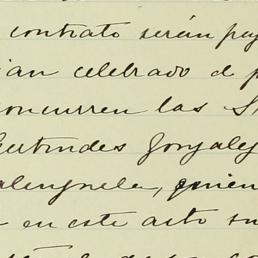 contrato serán pag
ian celebrado d p
concurren las S
Gertrudes Gonzalez
alenzuela, quien
en este acto su